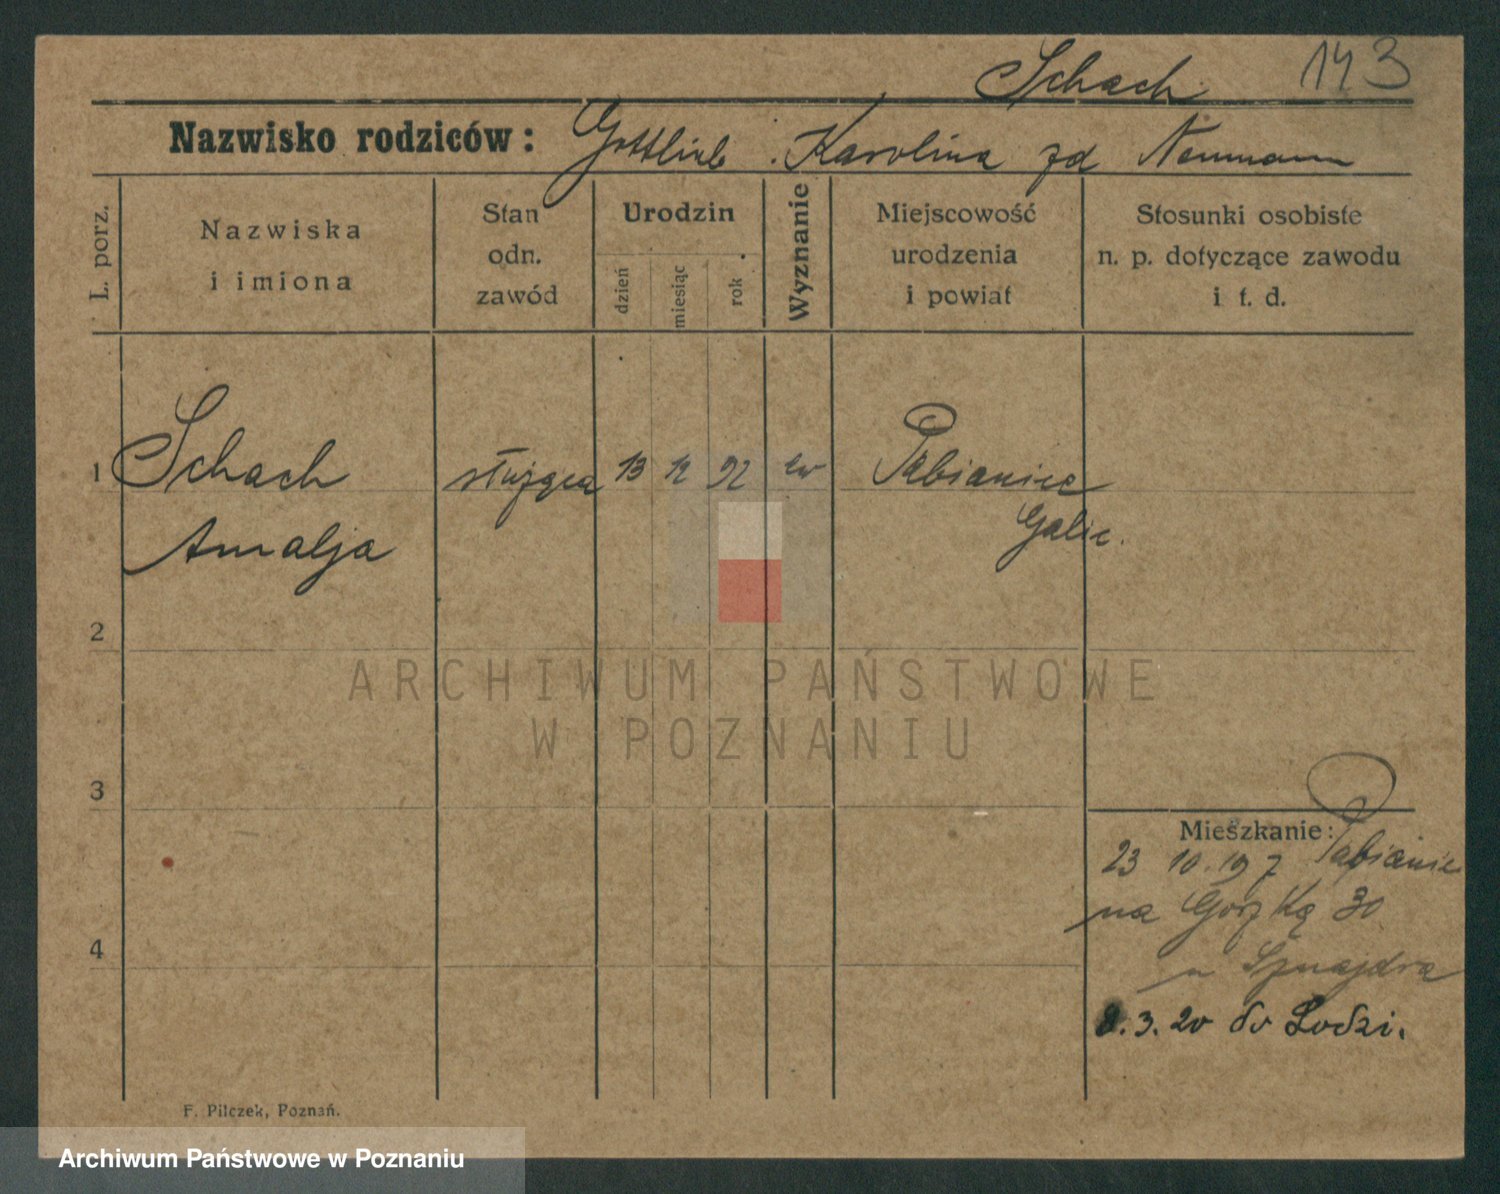 Schach 143
Nazwisko rodziców: Gottlieb. Karolina zd Neumann
L. porz.
Nazwiska
i imiona
Stan
odn.
zawód
Urodzin
dzień
miesiąc
rok
Wyznanie
Miejscowość
urodzenia
i powiat
Stosunki osobiste
n. p. dotyczące zawodu
i t. d.
1 Schach służąca 13 12 92 ew Pabianice
Amalja Galic.
2
ARCHIWUM PAŃSTWOWE
W POZNANIU
3
Mieszkanie:
23 10.19 Pabianic
na 30
4
.3.20 do Lodzi.
F. Pilczek, Poznań.
Archiwum Państwowe w Poznaniu